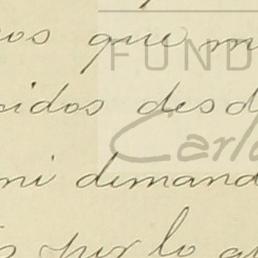 os que m
FUND
idos desd
Carlo
mi demand
s por lo q